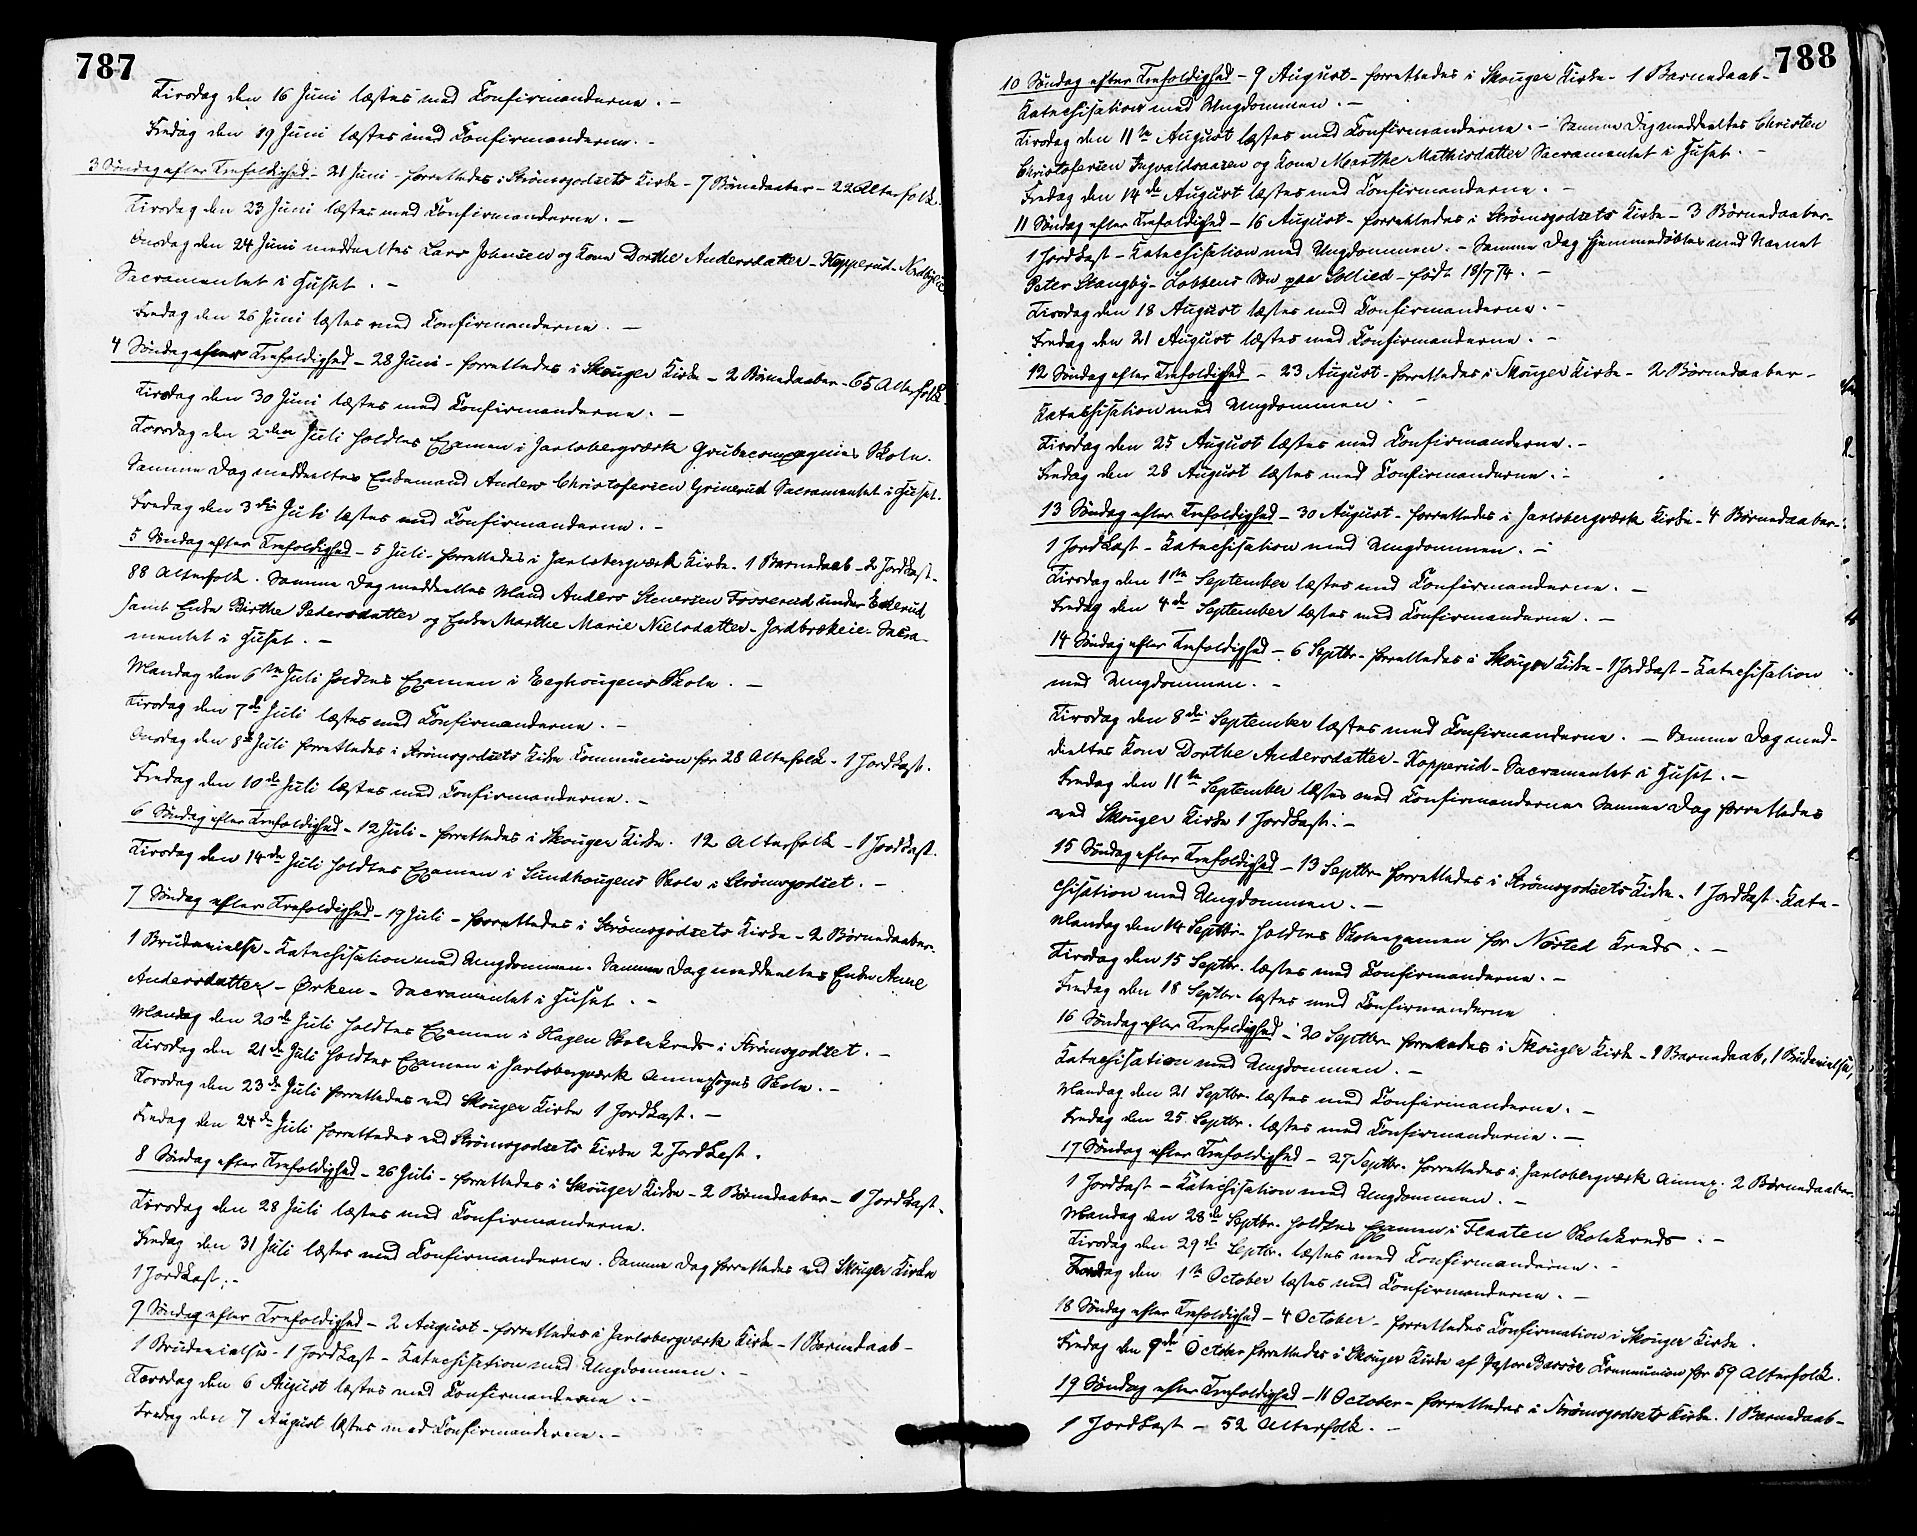 787
Tirsdag den 16 Juni læstes med Confirmanderne. –
Fredag den 19 Juni læstes med Confirmanderne. –
3 Søndag efter Trefoldighed – 21 Juni – forrettedes i Strømsgodsets Kirke – 7 Børnedaaber – 22 Alterfolk.
Tirsdag den 23 Juni læstes med Confirmanderne. –
Onsdag den 24 Juni meddeeltes Lars Johnsen og Kone Dorthe Andersdatter – Kopperud –
Sacramentet i Huset. –
Fredag den 26 Juni læstes med Confirmanderne. –
4 Søndag efter Trefoldighed – 28 Juni – forrettedes i Skouger Kirke – 2 Børnedaaber – 65 Alterfolk.
Tirsdag den 30 Juni læstes med Confirmanderne. –
Torsdag den 2den Juli holdtes Examen i Jarlsbergværk Grubecompagnies Skole.
Samme Dag meddeeltes Enkemand Anders Christofersen Grinerud Sacramentet i Huset.
Fredag den 3die Juli læstes med Confirmanderne. –
5 Søndag efter Trefoldighed – 5 Juli – forrettedes i Jarlsbergværk Kirke – 1 Barnedaab – 2 Jordkast –
88 Alterfolk. Samme Dag meddeeltes Mand Anders Stenersen Fosserud under Ekerud
samt Enke Birthe Pedersdatter og Enke Marthe Marie Nielsdatter – Jordbrækeie – Sacra-
mentet i Huset. –
Mandag den 6te Juli holdtes Examen i Eeghougens Skole. –
Tirsdag den 7de Juli læstes med Confirmanderne. –
Onsdag den 8de Juli forrettedes i Strømsgodsets Kirke Communion for 28 Alterfolk – 1 Jordkast.
Fredag den 10de Juli læstes med Confirmanderne. –
6 Søndag efter Trefoldighed – 12 Juli – forrettedes i Skouger Kirke. 12 Alterfolk – 1 Jordkast.
Tirsdag den 14de Juli holdtes Examen i Sundhougens Skole i Strømsgodset. –
7 Søndag efter Trefoldighed – 19 Juli – forrettedes i Strømsgodsets Kirke – 2 Børnedaaber –
1 Brudevielse – Katechisation med Ungdommen. Samme Dag meddeeltes Enke Anne
Andersdatter – Ørken – Sacramentet i Huset. –
Mandag den 20de Juli holdtes Examen i Hagen Skolekreds i Strømsgodset. –
Tirsdag den 21de Juli holdtes Examen i Jarlsbergværk Annexsogns Skole. –
Torsdag den 23de Juli forrettedes ved Skouger Kirke 1 Jordkast. –
Fredag den 24de Juli forrettedes ved Strømsgodsets Kirke 2 Jordkast.
8 Søndag efter Trefoldighed – 26 Juli – forrettedes i Skouger Kirke – 2 Børnedaaber – 1 Jordkast.
Tirsdag den 28 Juli læstes med Confirmanderne.
Fredag den 31 Juli læstes med Confirmanderne. Samme Dag forrettedes ved Skouger Kirke
1 Jordkast. –
9 Søndag efter Trefoldighed – 2 August – forrettedes i Jarlsbergværk Kirke – 1 Barnedaab –
1 Brudevielse – 1 Jordkast – Katechisation med Ungdommen. –
Torsdag den 6 August læstes med Confirmanderne. –
Fredag den 7 August læstes med Confirmanderne. –
788
10 Søndag efter Trefoldighed – 9 August – forrettedes i Skouger Kirke – 1 Barnedaab –
Katechisation med Ungdommen. –
Tirsdag den 11te August læstes med Confirmanderne. – Samme Dag meddeeltes Christen
Christofersen Ingvaldsaasen og Kone Marthe Mathisdatter Sacramentet i Huset. –
Fredag den 14de August læstes med Confirmanderne. –
11 Søndag efter Trefoldighed – 16 August – forrettedes i Strømsgodsets Kirke – 3 Børnedaaber –
1 Jordkast – Katechisation med Ungdommen. – Samme Dag hjemmedøbtes med Navnet
Peter Stangby – Søn paa – født 18/7 74. –
Tirsdag den 18 August læstes med Confirmanderne. –
Fredag den 21 August læstes med Confirmanderne. –
12 Søndag efter Trefoldighed – 23 August – forrettedes i Skouger Kirke – 2 Børnedaaber –
Katechisation med Ungdommen. –
Tirsdag den 25 August læstes med Confirmanderne. –
Fredag den 28 August læstes med Confirmanderne. –
13 Søndag efter Trefoldighed – 30 August – forrettedes i Jarlsbergværk Kirke – 4 Børnedaaber –
1 Jordkast – Katechisation med Ungdommen. –
Tirsdag den 1ste September læstes med Confirmanderne. –
Fredag den 4de September læstes med Confirmanderne. –
14 Søndag efter Trefoldighed – 6 Septbr. forrettedes i Skouger Kirke – 1 Jordkast – Katechisation
med Ungdommen. –
Tirsdag den 8de September læstes med Confirmanderne. – Samme Dag med-
deeltes Kone Dorthe Andersdatter – Kopperud – Sacramentet i Huset. –
Fredag den 11te September læstes med Confirmanderne Samme Dag forrettedes
ved Skouger Kirke 1 Jordkast. –
15 Søndag efter Trefoldighed – 13 Septbr. forrettedes i Strømsgodsets Kirke. 1 Jordkast – Kate-
chisation med Ungdommen. –
Mandag den 14 Septbr. holdtes Skoleexamen for Nøsted Kreds. –
Tirsdag den 15 Septbr. læstes med Confirmanderne. –
Fredag den 18 Septbr. læstes med Confirmanderne
16 Søndag efter Trefoldighed – 20 Septbr. forrettedes i Skouger Kirke – 1 Barnedaab, 1 Brudevielse,
Katechisation med Ungdommen. –
Mandag den 21 Septbr. læstes med Confirmanderne. –
Fredag den 25 Septbr. læstes med Confirmanderne. –
17 Søndag efter Trefoldighed – 27 Septbr. forrettedes i Jarlsbergværk Annex. 2 Børnedaaber.
1 Jordkast – Katechisation med Ungdommen. –
Mandag den 28de Septbr. holdtes Examen i Flaaten Skolekreds. –
Tirsdag den 29de Septbr. læstes med Confirmanderne. –
Torsdag den 1ste October læstes med Confirmanderne. –
18 Søndag efter Trefoldighed – 4 October – forrettedes Confirmation i Skouger Kirke.
Fredag den 9de October forrettedes i Skouger Kirke af Pastor Communion for 59 Alterfolk.
19 Søndag efter Trefoldighed – 11 October – forrettedes i Strømsgodsets Kirke. 1 Barnedaab –
1 Jordkast – 52 Alterfolk. –